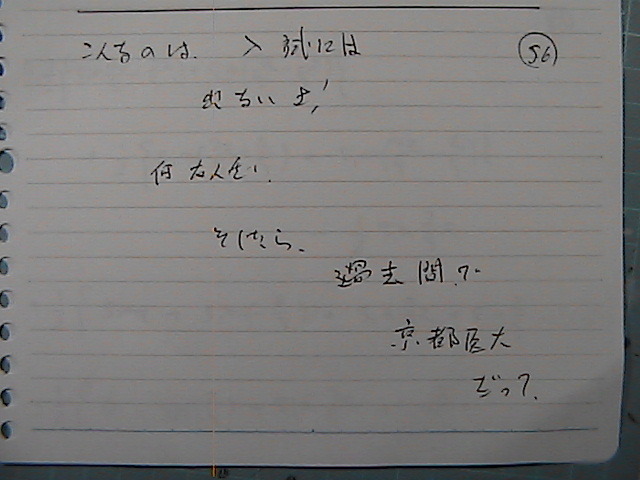 こんなのは、入試には
56
出ないよ!
何なんだい、
そしたら、
過去問で
京都医大
だって、